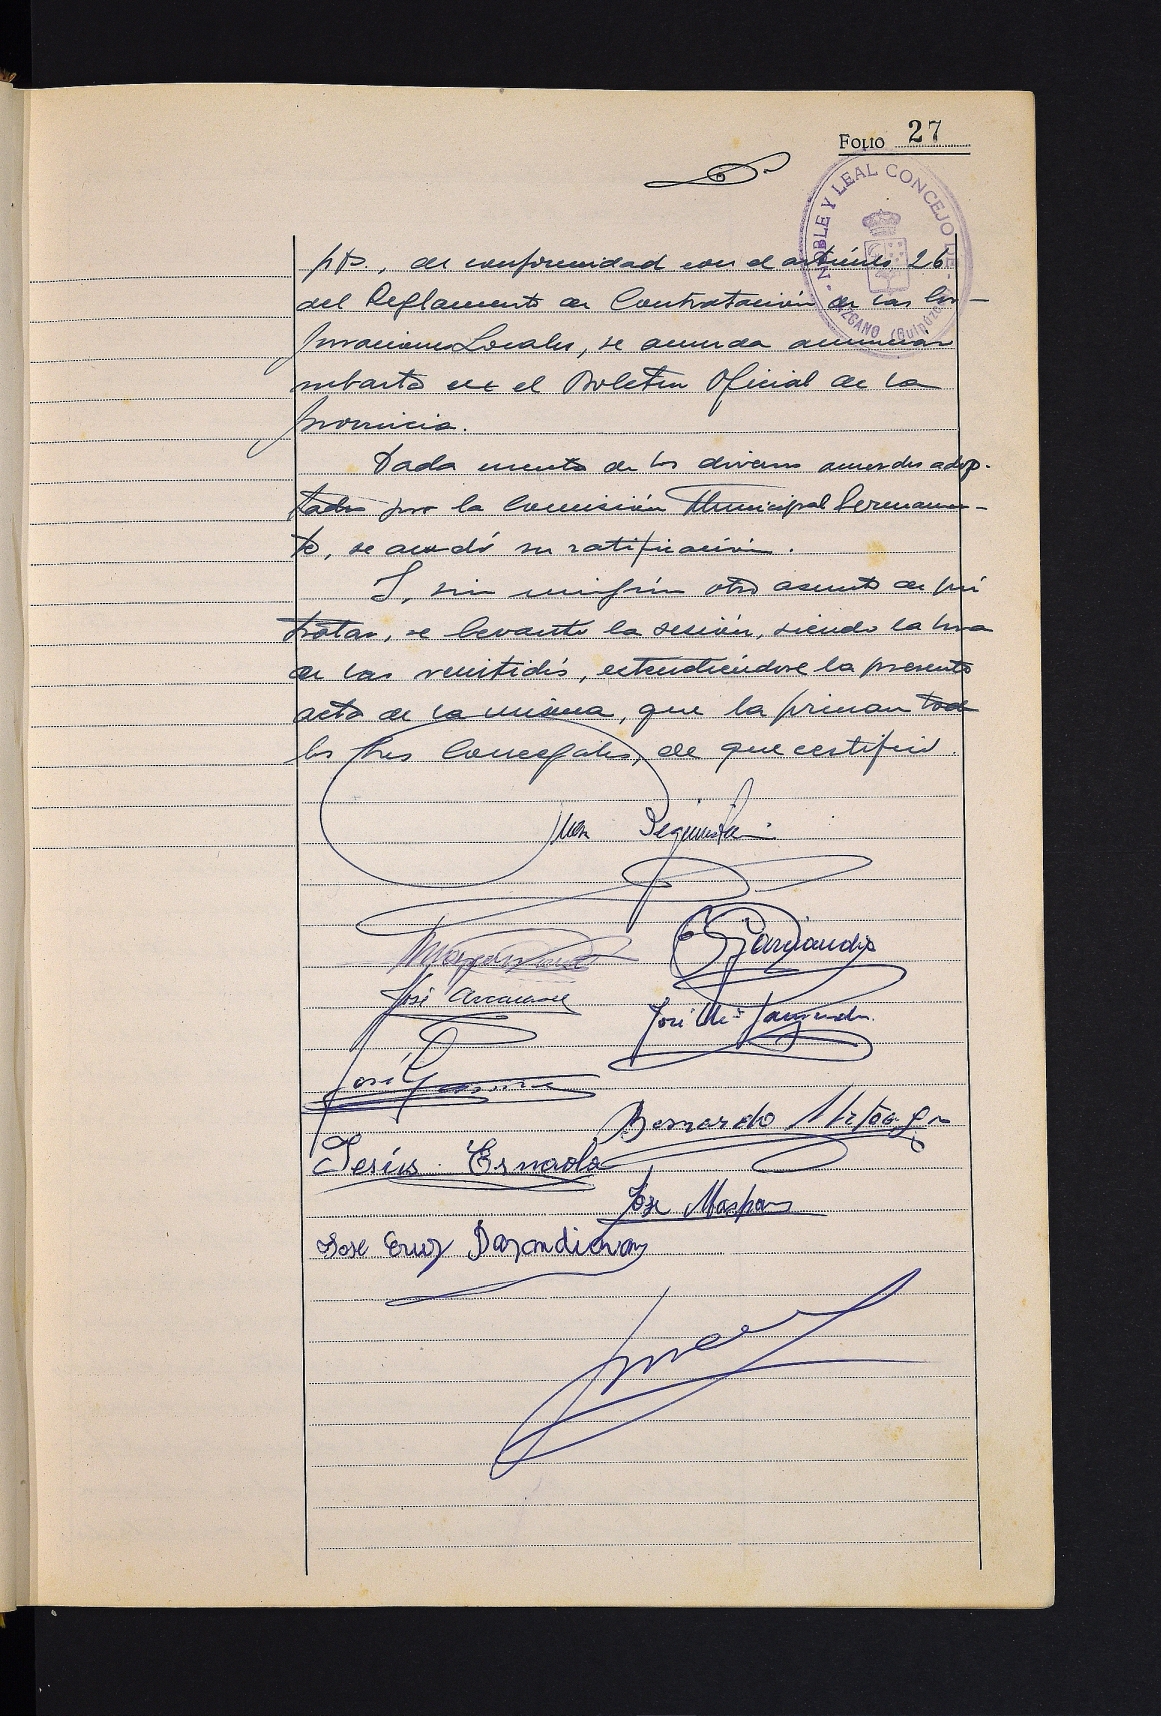 FOLIO 27
NOBLE Y LEAL CONCEJO DE LAZCANO (Guipúzcoa)
pts., de conformidad con el artículo 26
del Reglamento de Contratación de las Cor-
poraciones Locales, se acuerda anunciar
subasta en el Boletín Oficial de la
provincia.
Dada cuenta de los diversos acuerdos adop-
tados por la Comisión Municipal Permanen-
te, se acordó su ratificación.
Y, sin ningún otro asunto de que
tratar, se levantó la sesión, siendo la hora
de las veintidós, extendiéndose la presente
acta de la misma, que la firman todos
los Sres Concejales, de que certifico.
Juan
José
José Mª
José
Bernardo
Jesús Esnaola
Jose
Jose Cruz